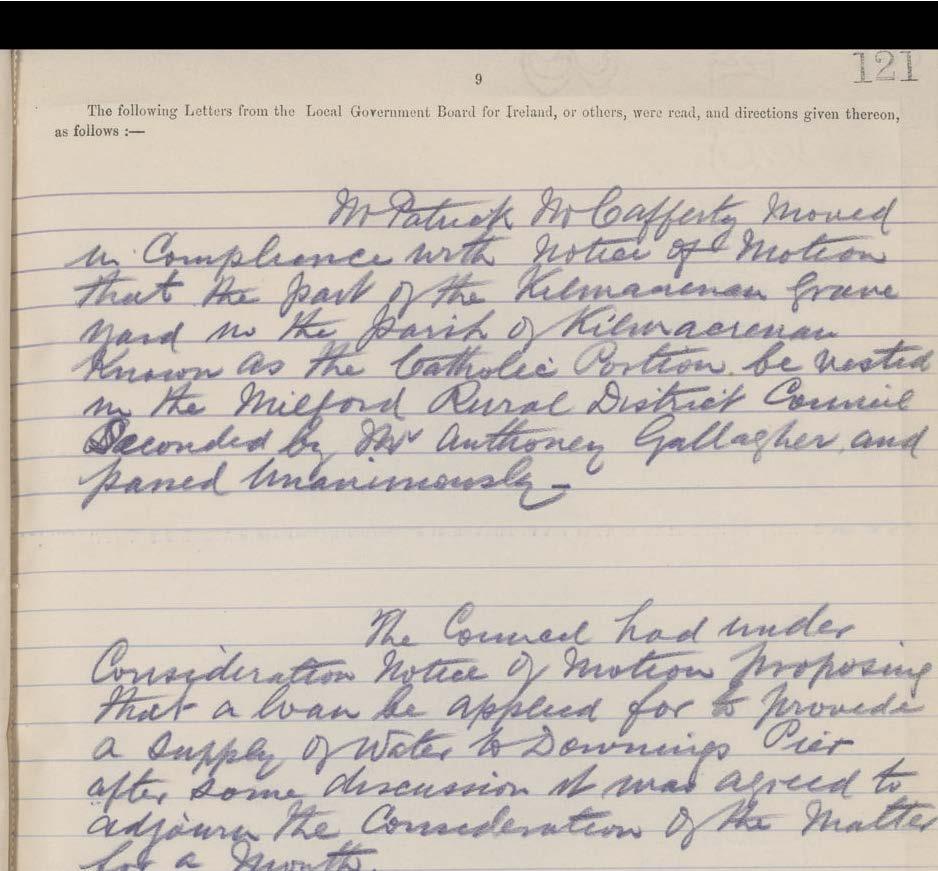 121
9
The following Letters from the Local Government Board for Ireland, or others, were read, and directions given thereon,
as follows :—
Mr Patrick McCafferty Moved
in Compliance with Notice of Motion
that the part of the Kilmacrenan Grave
yard in the parish of Kilmacrenan
Known as the Catholic Portion be vested
in the Milford Rural District Council
Seconded by Mr Anthoney Gallagher and
passed Unanimously —
The Council had under
Consideration Notice of Motion proposing
that a loan be applied for to provide
a supply of Water to Downings Pier
after some discussion it was agreed to
adjourn the Consideration of the Matter
for a Month.